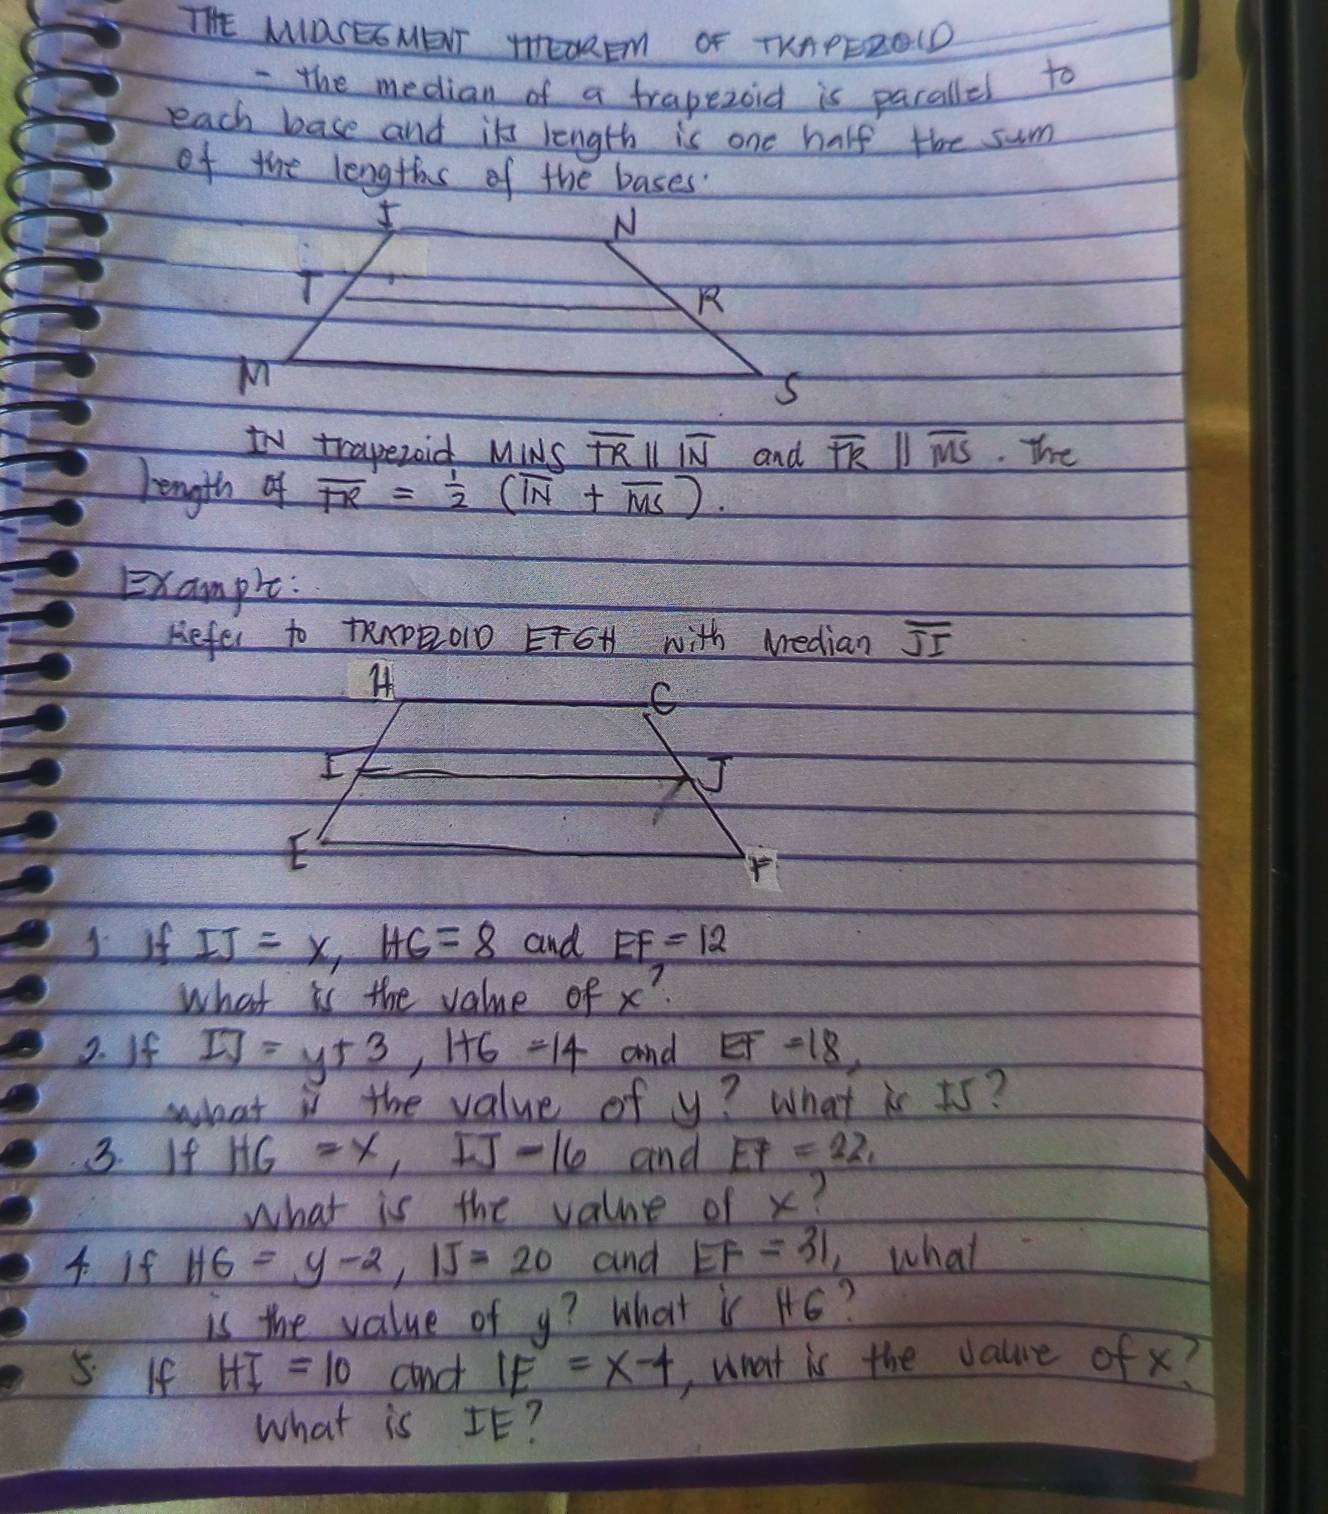 THE MIDSEGMENT THEOREM OF TRAPEZOID
- the median of a trapezoid is parallel to
each base and its length is one half the sum
of the lengths of the bases.
I N
T R
M S
IN trapezoid MINS TR || IN and TR || MS. The
length of TR = 1/2 (IN + MS).
Example:
Refer to TRAPEZOID EFGH with Median JI
H G
I J
E F
1. If IJ = x, HG = 8 and EF = 12
What is the value of x?
2. If IJ = y+3, HG = 14 and EF = 18,
what is the value of y? What is IJ?
3. If HG = x, IJ = 16 and EF = 22.
What is the value of x?
4. If HG = y-2, IJ = 20 and EF = 31, what
is the value of y? What is HG?
5. If HI = 10 and IE = x-4, what is the value of x?
What is IE?